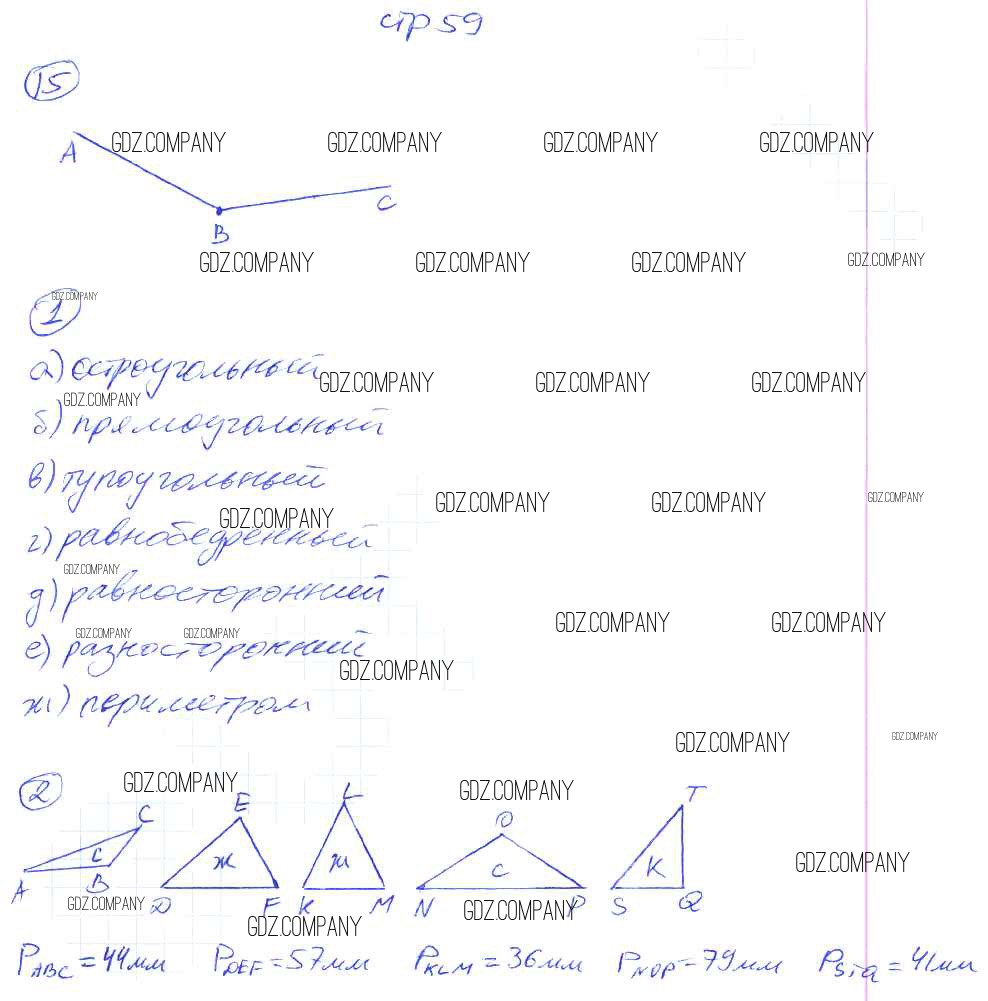 стр 59
15
GDZ.COMPANY GDZ.COMPANY GDZ.COMPANY GDZ.COMPANY
A
C
B
GDZ.COMPANY GDZ.COMPANY GDZ.COMPANY GDZ.COMPANY
GDZ.COMPANY
1
а) остроугольный
GDZ.COMPANY GDZ.COMPANY GDZ.COMPANY
GDZ.COMPANY
б) прямоугольный
в) тупоугольный
GDZ.COMPANY GDZ.COMPANY GDZ.COMPANY
GDZ.COMPANY
г) равнобедренный
GDZ.COMPANY
д) равносторонний
GDZ.COMPANY GDZ.COMPANY
GDZ.COMPANY GDZ.COMPANY
е) разносторонний
GDZ.COMPANY
ж) периметром
GDZ.COMPANY GDZ.COMPANY
2
GDZ.COMPANY GDZ.COMPANY
C E L O T
с ж ж с К
GDZ.COMPANY
A B D F K M N P S Q
GDZ.COMPANY GDZ.COMPANY
GDZ.COMPANY
P ABC = 44 мм P DEF = 57 мм P KLM = 36 мм P NOP = 79 мм P STQ = 41 мм